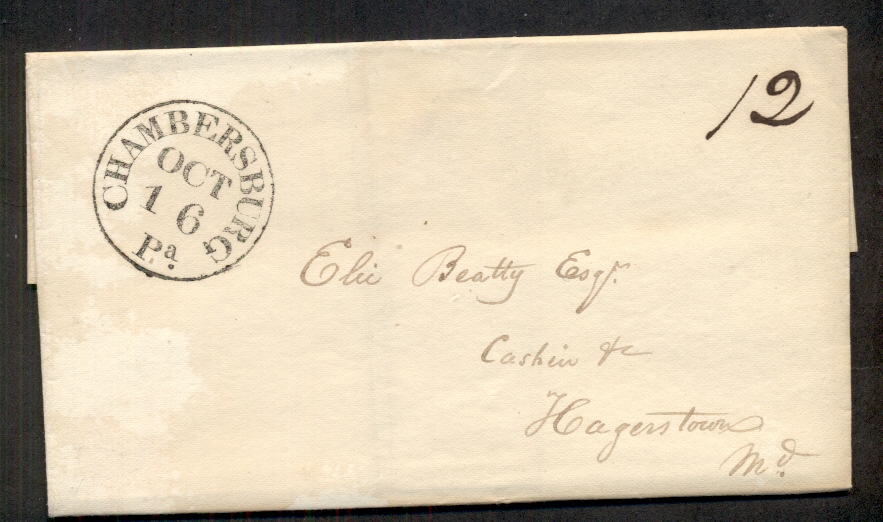 CHAMBERSBURG
OCT
16
Pa.
12
Elie Beatty Esqr.
Cashier &c
Hagerstown
Md.